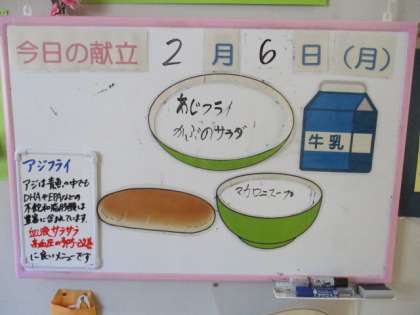 今日の献立 2月6日(月)
あじフライ
かぶのサラダ
牛乳
マカロニスープ
アジフライ
アジは青魚の中でも
DHAやEPAなどの
不飽和脂肪酸は
豊富に含まれています。
血液サラサラ
高血圧の予防・改善
に良いメニューです